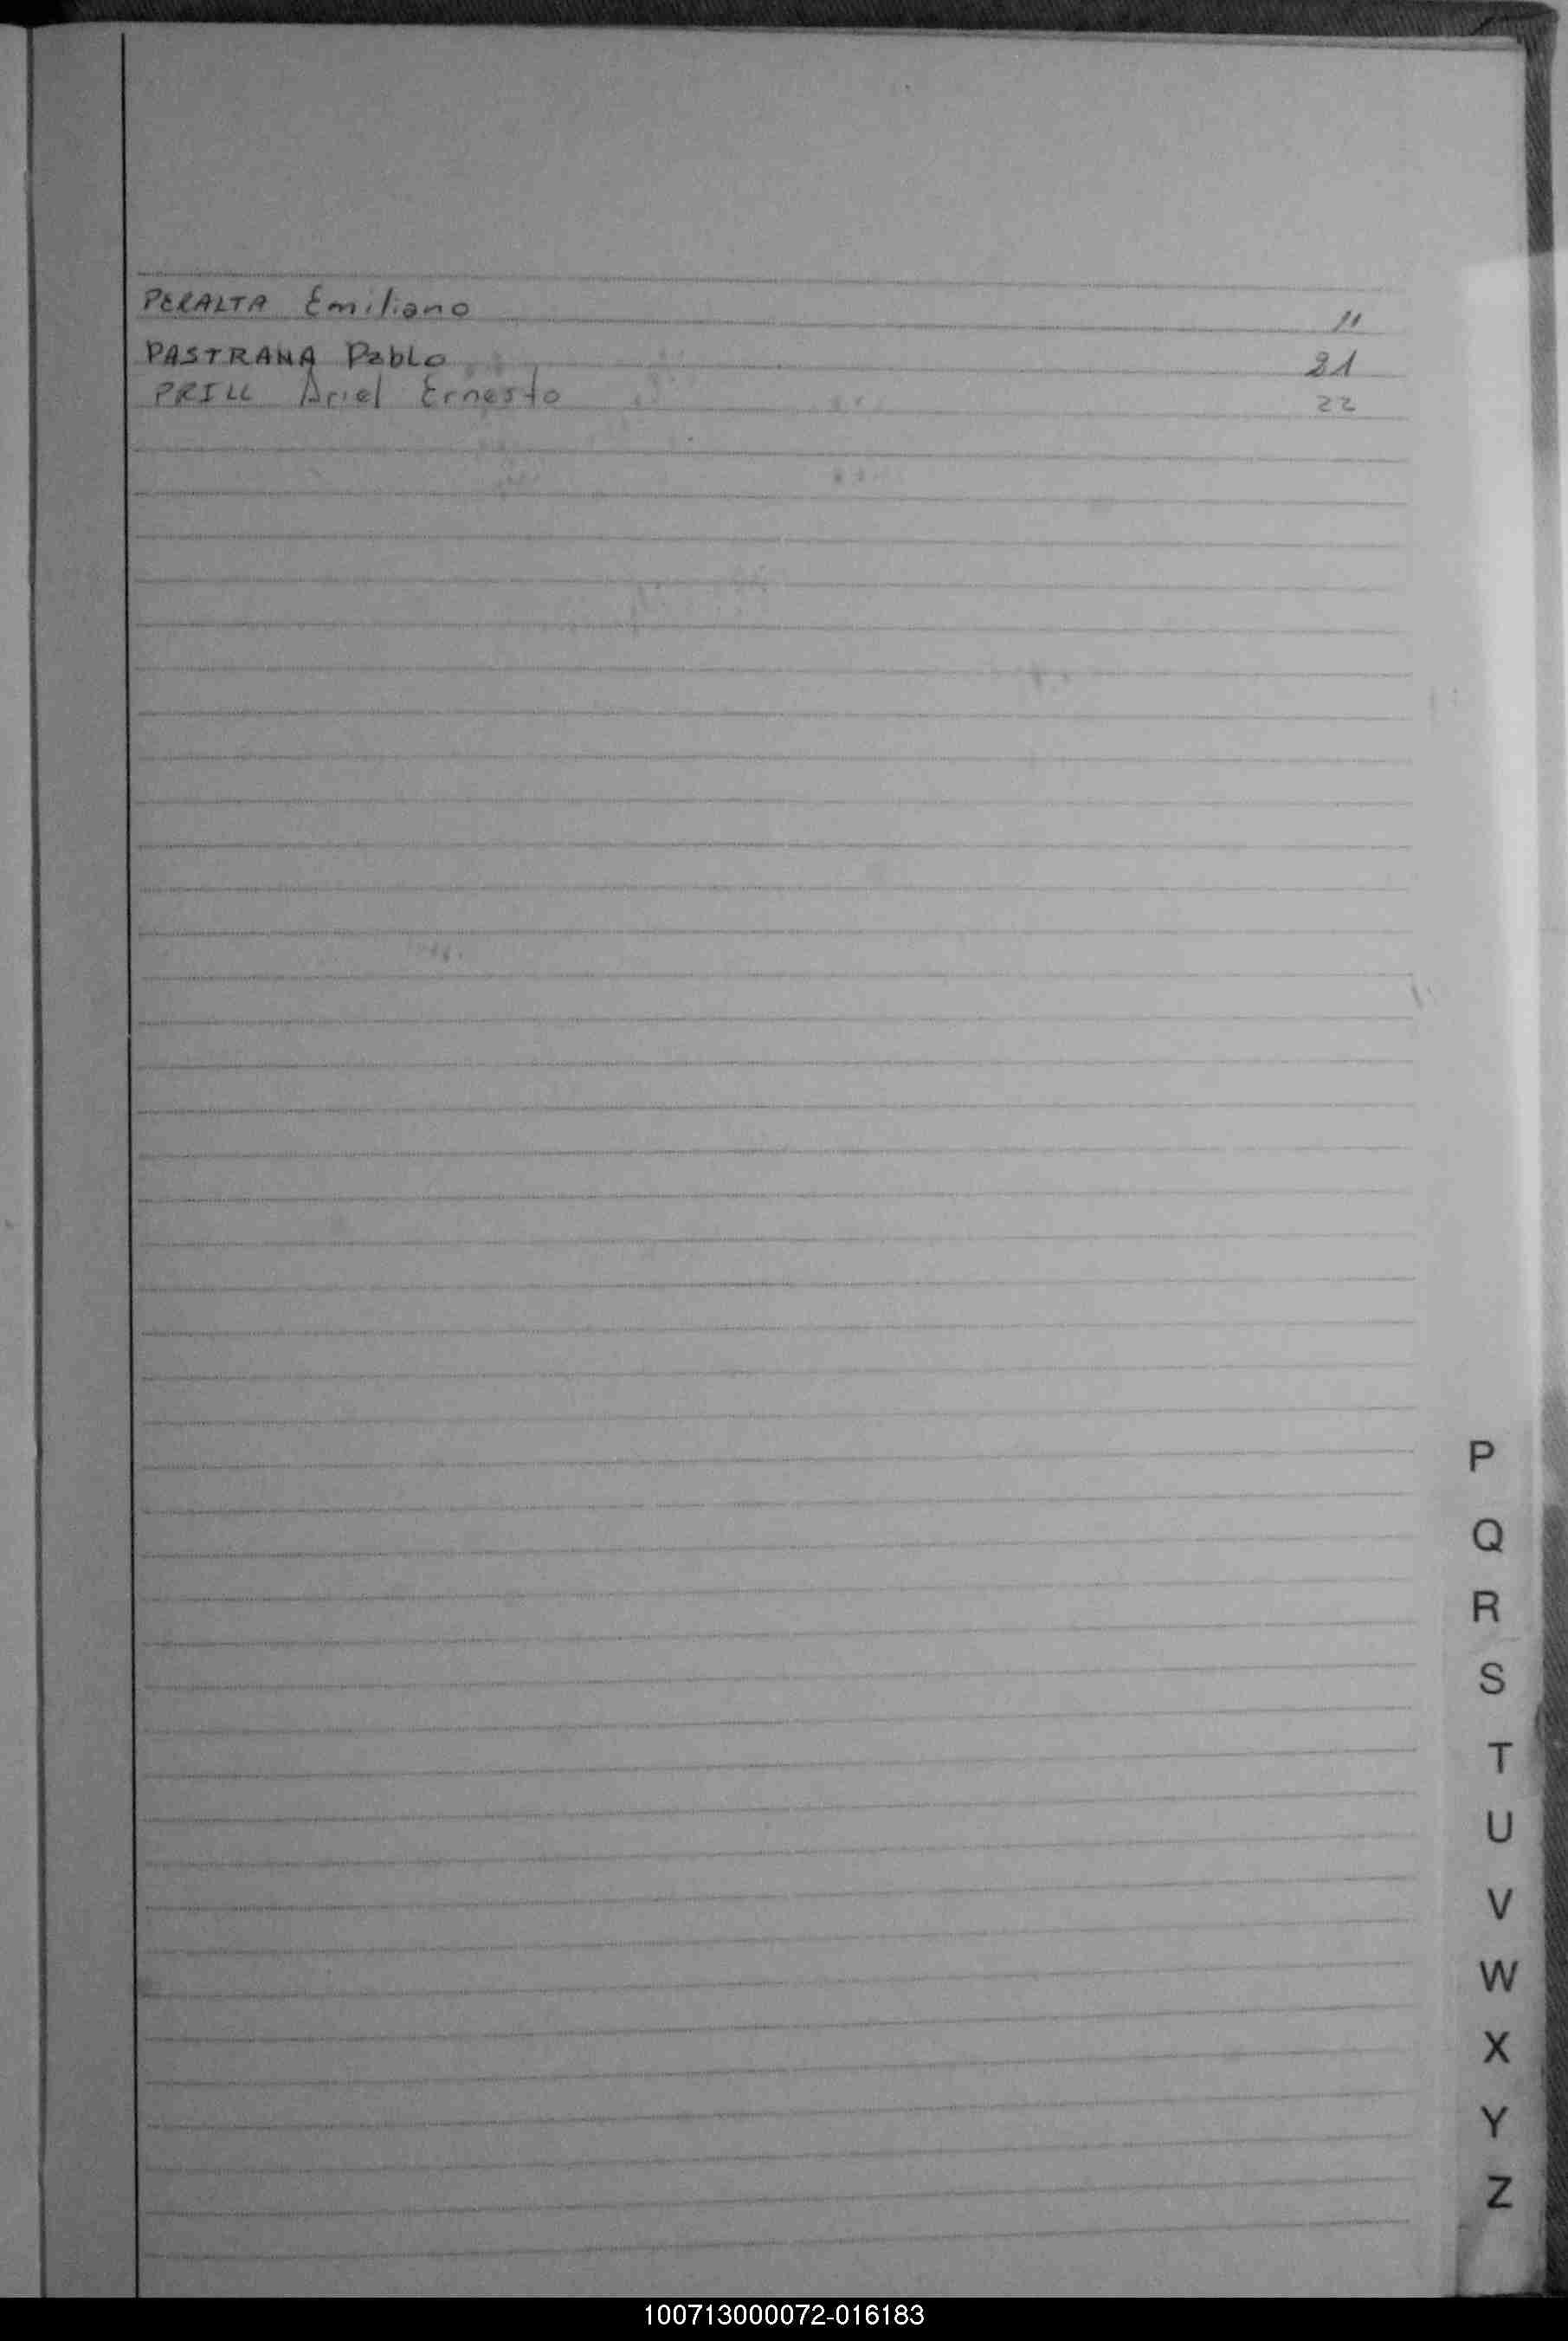 PERALTA Emiliano 11
PASTRANA Pablo 21
PRILL Ariel Ernesto 22
P
Q
R
S
T
U
V
W
X
Y
Z
100713000072-016183